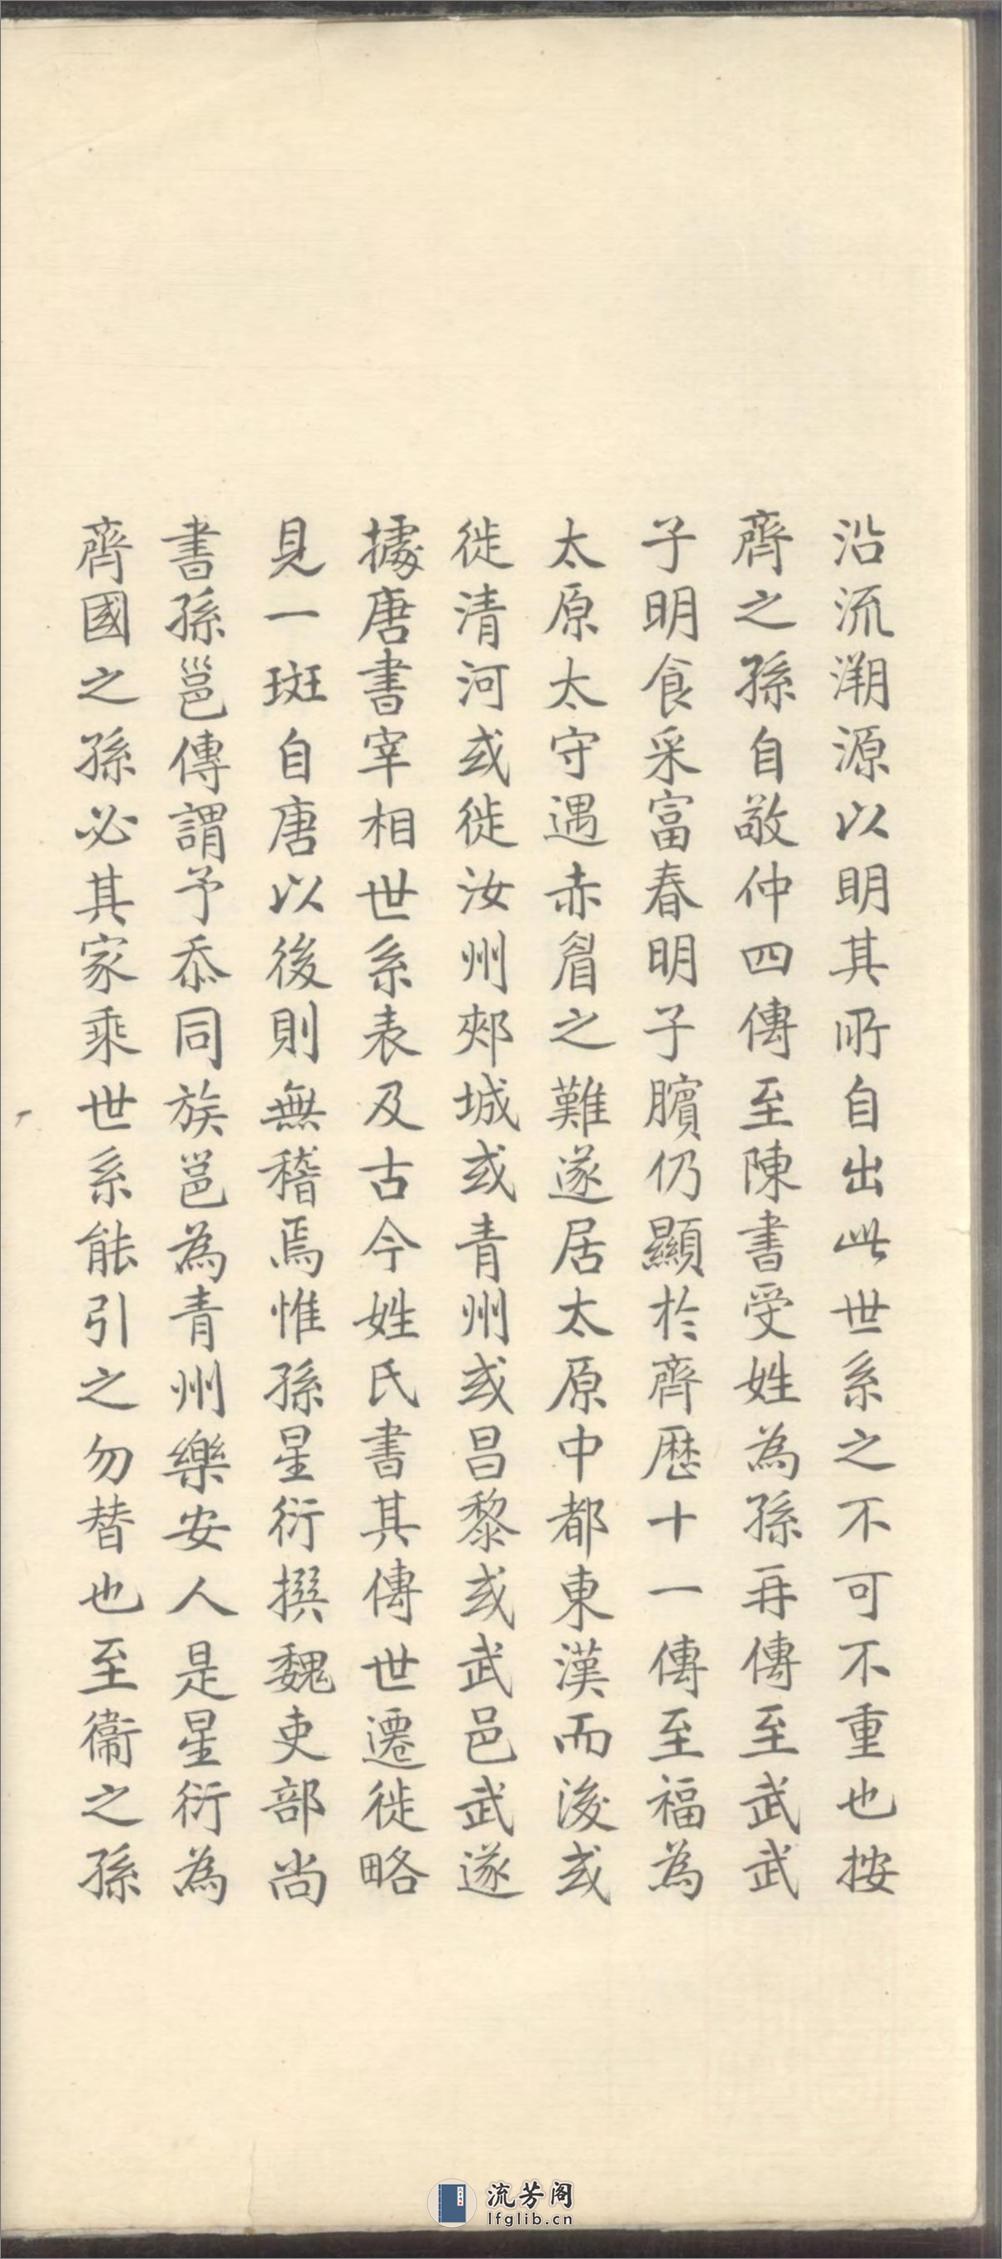 沿流溯源以明其所自出此世系之不可不重也按
齊之孫自敬仲四傳至陳書受姓為孫再傳至武武
子明食采富春明子臏仍顯於齊歷十一傳至福為
太原太守遇赤眉之難遂居太原中都東漢而後或
徙清河或徙汝州郟城或青州或昌黎或武邑武遂
據唐書宰相世系表及古今姓氏書其傳世遷徙略
見一斑自唐以後則無稽焉惟孫星衍撰魏吏部尚
書孫邕傳謂予忝同族邕為青州樂安人是星衍為
齊國之孫必其家乘世系能引之勿替也至衞之孫
流芳阁
lfglib.cn